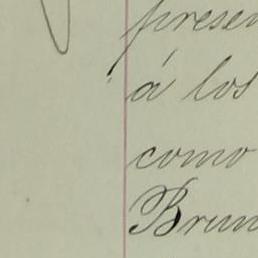 presen
á los
como
Brun